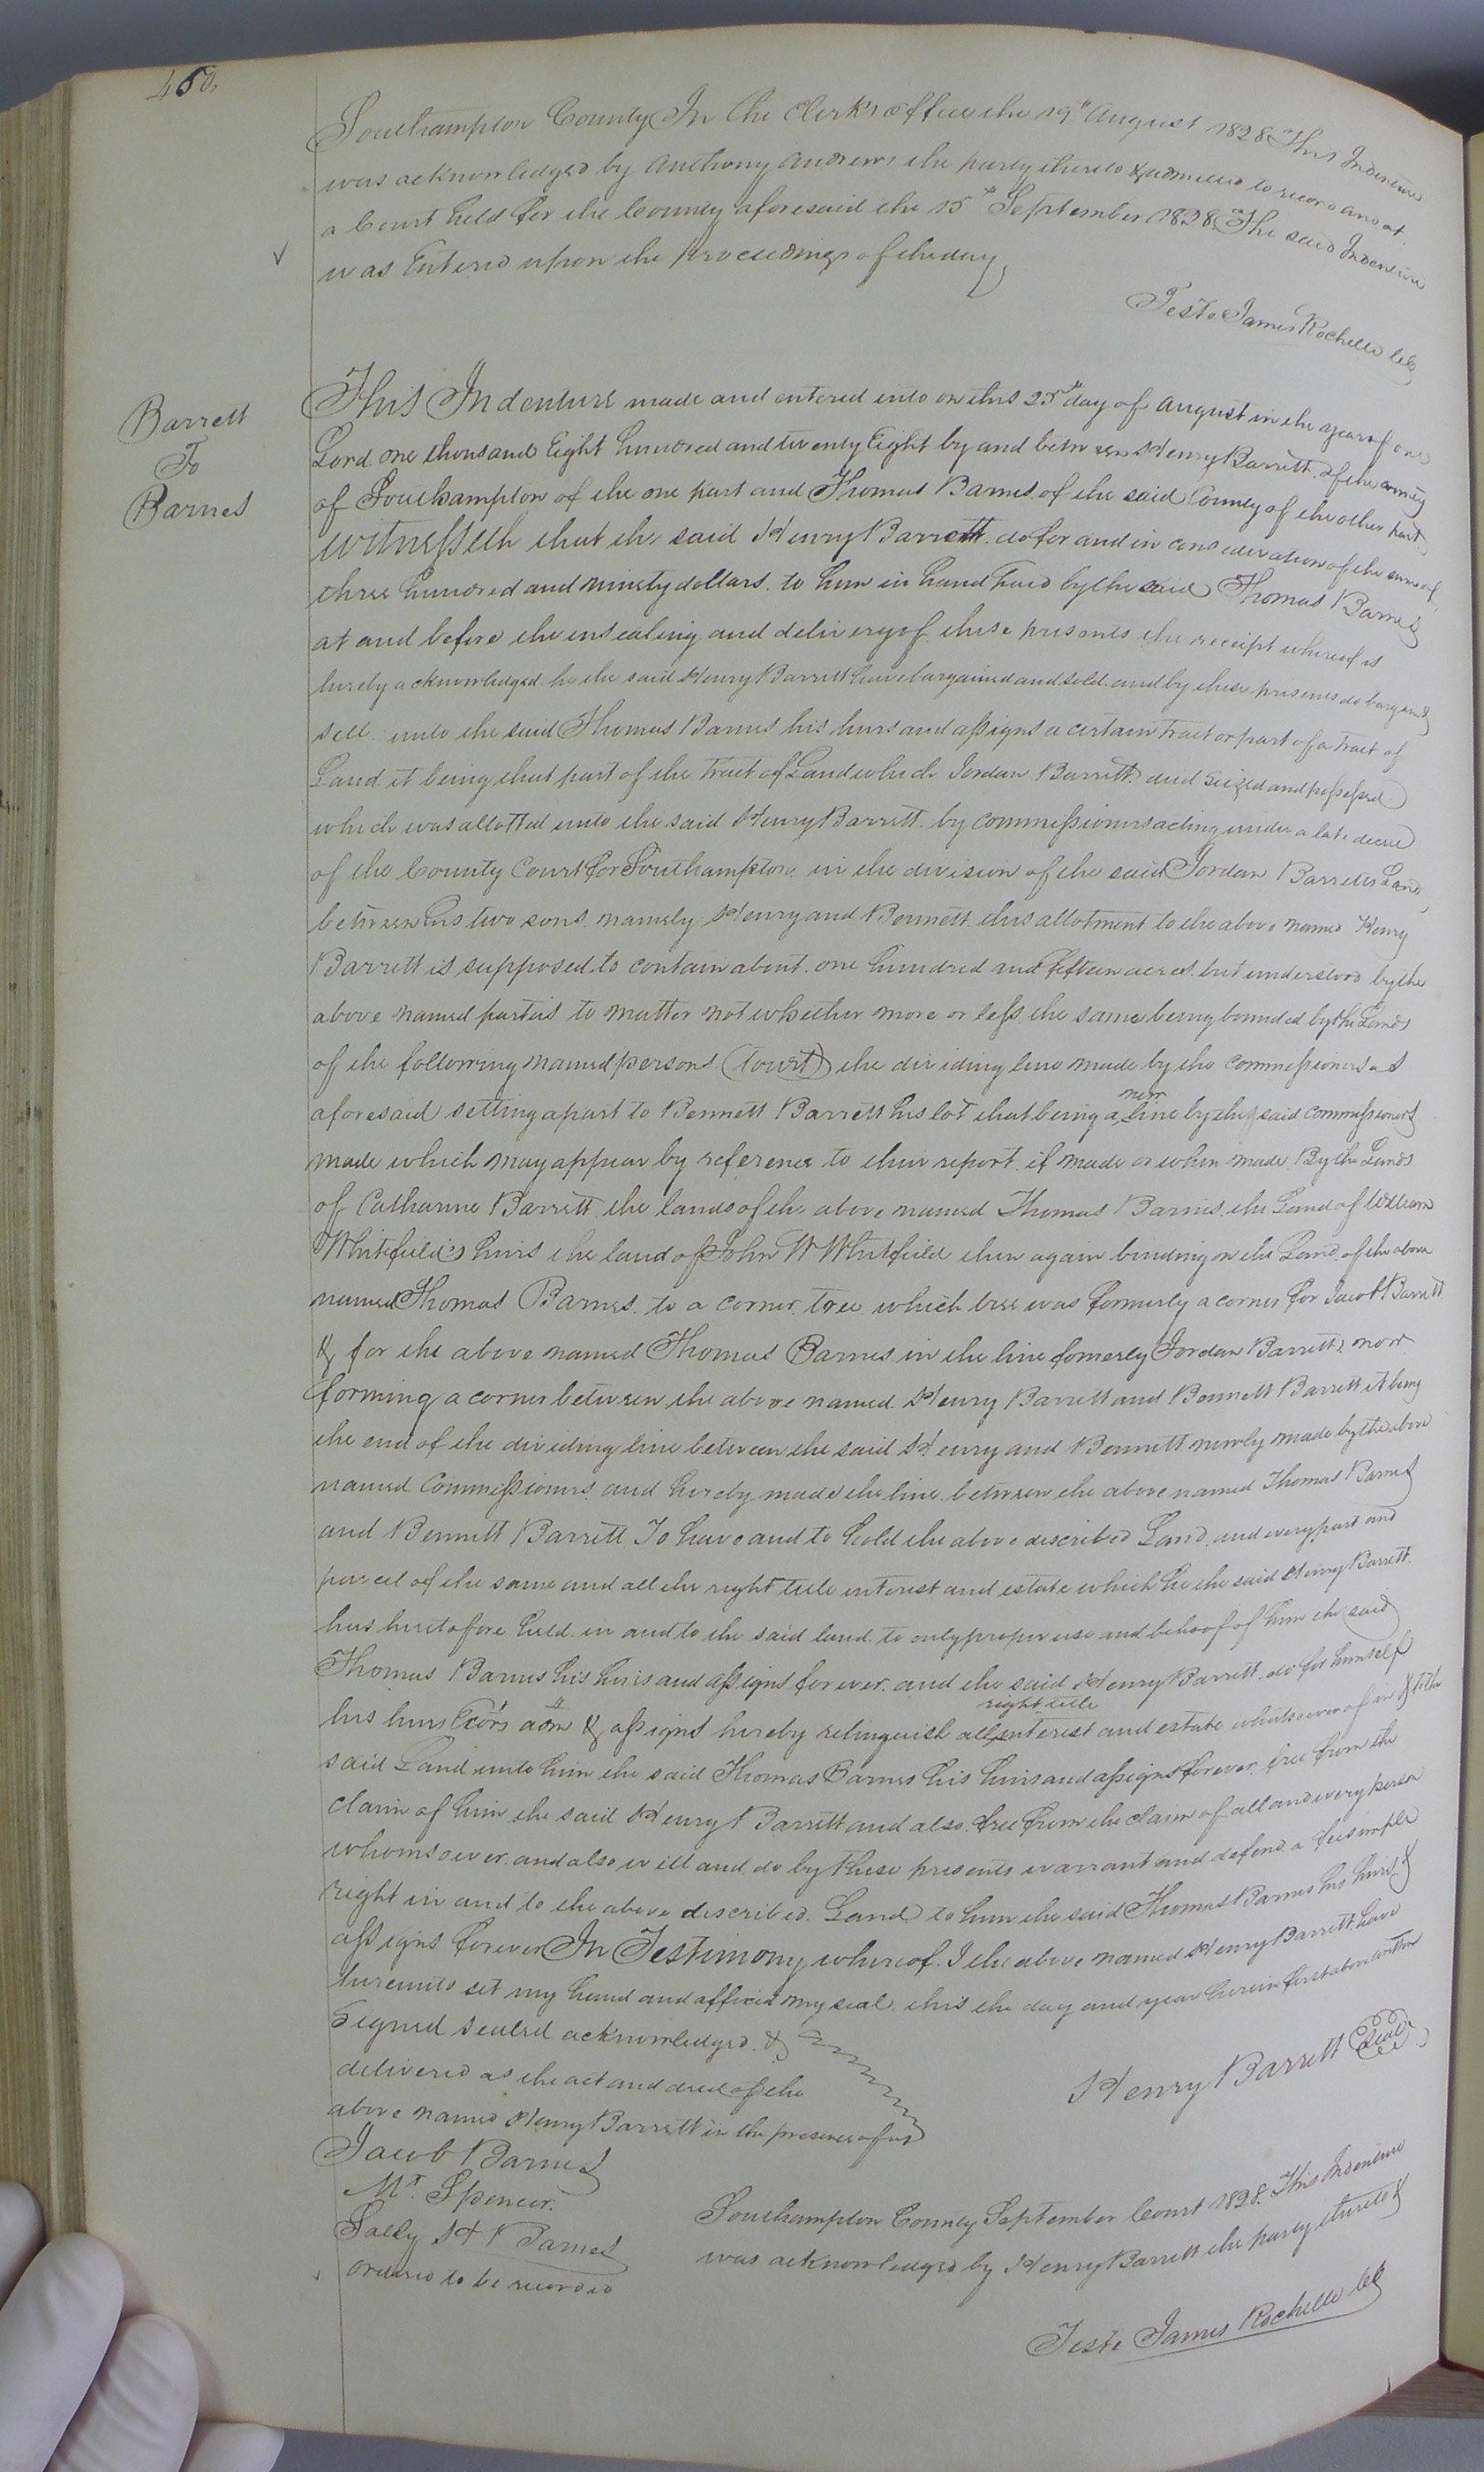 450.
Southampton County In the Clerk's office the 19th August 1828 This Indenture
was acknowledged by Anthony Andrews the party thereto & admitted to record and at
a Court held for the County aforesaid the 15th September 1828 The said Indenture
was Entered upon the proceedings of the day
Teste James Rochelle Clk
Barrett
To
Barnes
This Indenture made and entered into on this 25th day of August in the year of our
Lord one thousand Eight hundred and twenty Eight by and between Henry Barrett of the County
of Southampton of the one part and Thomas Barnes of the said County of the other part
Witnesseth that the said Henry Barrett do for and in consideration of the sum of
three hundred and ninety dollars to him in hand paid by the said Thomas Barnes
at and before the ensealing and delivery of these presents the receipt whereof is
hereby acknowledged he the said Henry Barrett have bargained and sold and by these presents do bargain &
sell unto the said Thomas Barnes his heirs and assigns a certain tract or part of a tract of
Land it being that part of the tract of Land which Jordan Barrett died seized and possessed
which was allotted unto the said Henry Barrett by commissioners acting under a late decree
of the County Court for Southampton in the division of the said Jordan Barretts Land
between his two sons namely Henry and Bennett this allotment to the above named Henry
Barrett is supposed to contain about one hundred and fifteen acres but understood by the
above named parties to matter not whether more or less the same being bounded by the Lands
of the following named persons (towit) the dividing line made by the commissioners as
aforesaid setting apart to Bennett Barrett his lot that being a new line by the said commissioners
made which may appear by reference to their report if made or when made By the Lands
of Catharine Barrett the lands of the above named Thomas Barnes the Land of William
Whitfield's heirs the land of John W Whitfield then again binding on the Land of the above
named Thomas Barnes to a corner tree which tree was formerly a corner for Jacob Barrett
& for the above named Thomas Barnes in the line fomerly Jordan Barretts now
forming a corner between the above named Henry Barrett and Bennett Barrett it being
the end of the dividing line between the said Henry and Bennett newly made by the above
named Commissioners and hereby made the line between the above named Thomas Barnes
and Bennett Barrett To have and to hold the above described Land and every part and
parcel of the same and all the right title interest and estate which he the said Henry Barrett
has heretofore held in and to the said land to only proper use and behoof of him the said
Thomas Barnes his heirs and assigns forever and the said Henry Barrett do for himself
his heirs Exors adm & assigns hereby relinquish all right title interest and estate whatsoever of in & to the
said Land unto him the said Thomas Barnes his heirs and assigns forever free from the
claim of him the said Henry Barrett and also free from the claim of all and every person
whomsoever and also will and do by these presents warrant and defend a feesimple
right in and to the above described Land to him the said Thomas Barnes his heirs &
assigns forever In Testimony whereof I the above named Henry Barrett have
hereunto set my hand and affixed my seal this the day and year herein first above written
Signed sealed acknowledged &
delivered as the act and deed of the
above named Henry Barrett in the presence of us
Henry Barrett (Seal)
Jacob Barnes
Mr. Spencer.
Sally H Barnes
Southampton County September Court 1828. This Indenture
was acknowledged by Henry Barrett the party thereto &
ordered to be recorded
Teste James Rochelle Clk